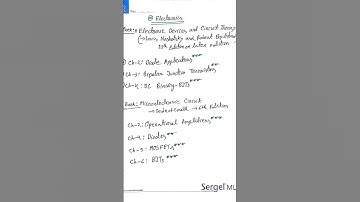 Electronics
Book: Electronic Devices and Circuit Theory
Louis Nashelsky and Robert Boylestad
10th Edition or later edition
Ch-2: Diode Applications ***
Ch-3: Bipolar Junction Transistors ***
Ch-4: DC Biasing-BJTs ***
Book: Microelectronic Circuit
→ Sedra & Smith → 6th Edition
Ch-2: Operational Amplifiers ***
Ch-4: Diodes ***
Ch-5: MOSFETs ***
Ch-6: BJTs ***
Sergel MU